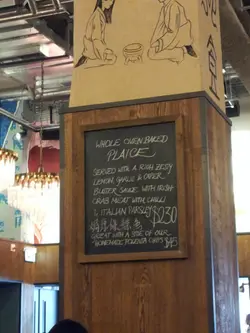 WHOLE OVEN BAKED
PLAICE
SERVED WITH A RICH ZESTY
LEMON, GARLIC & CAPER
BUTTER SAUCE. WITH FRESH
CRAB MEAT WITH CHILLI
& ITALIAN PARSLEY $230
GREAT WITH A SIDE OF OUR
"HOMEMADE POLENTA CHIPS $45
食